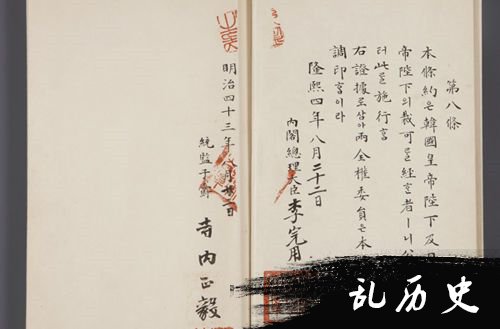 第八條
本條約은韓國皇帝陛下及日
帝陛下의裁可를經ᄒᆞᆫ者ㅣ니公
터此를施行홈
右證據로삼아兩全權委員은本
調印홈이라
隆熙四年八月二十二日
內閣總理大臣 李完用
明治四十三年八月廿二日
統監子爵 寺內正毅
乱历史